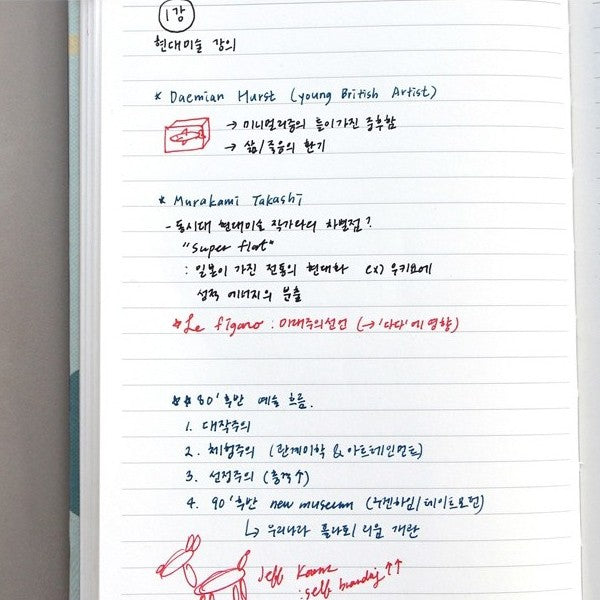 1강
현대미술 강의
* Daemian Hurst (young British Artist)
→ 미니멀리즘의 틀이가진 중후함
→ 삶/죽음의 환기
* Murakami Takashi
- 동시대 현대미술 작가와의 차별점?
"super flat"
: 일본이 가진 전통의 현대화 ex) 우키요에
성적 에너지의 분출
☆Le figaro : 미래주의선언 (→'다다'에 영향)
☆☆80'후반 예술 흐름.
1. 대작주의
2. 체험주의 (관계미학 & 아트테인먼트)
3. 선정주의 (충격↑)
4. 90'후반 new museum (구겐하임/테이트모던)
↳ 우리나라 플라토/리움 개관
Jeff Koons
: self branding ↑↑